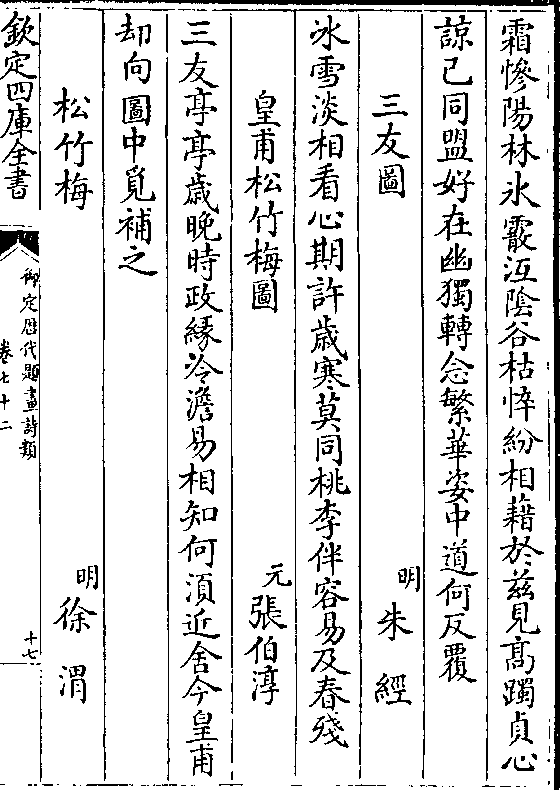 霜慘陽林氷霰沍陰谷枯悴紛相藉於兹見髙躅貞心
諒已同盟好在幽獨轉念繁華姿中道何反覆
三友圖 明 朱經
冰雪淡相看心期許歳寒莫同桃李伴容易及春殘
皇甫松竹梅圖 元 張伯淳
三友亭亭歳晚時政緣冷澹易相知何湏近舍今皇甫
却向圖中覓補之
松竹梅 明 徐渭
欽定四庫全書
御定歴代題畫詩類
卷七十二
十七